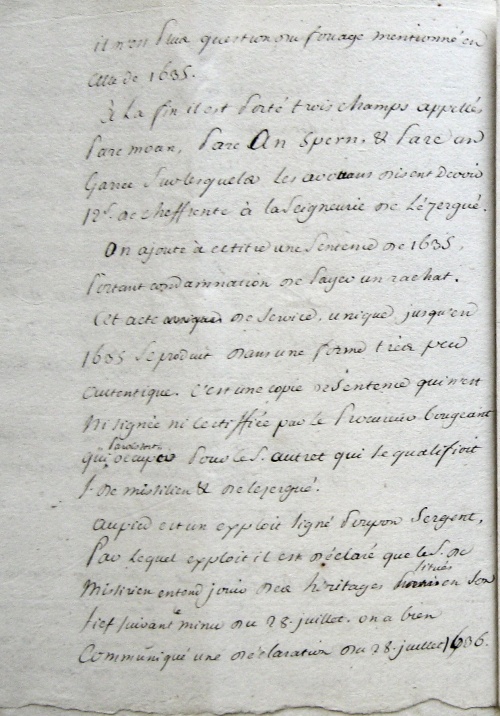 il n'est plus question du fouage mentionné en
celle de 1635.
À La fin il est porté trois champs appellés
Parc moan, Parc An Spern, & Parc an
Garen sur lesquels les avouans disent Devoir
12s. de cheffrente à la Seigneurie de Lézergué.
On ajoute à ce titre une Sentence de 1635,
Portant condamnation de payer un rachat.
Cet acte de Service, unique jusqu'en
1635 se produit dans une forme très peu
autentique. C'est une copie de Sentence qui n'est
Ni signée ni certiffiée par le Procureur
qui pour le S. autret qui se qualifioit
S. de missilien & de lezergué.
au pied est un exploit signé Sergent,
Par lequel exploit il est déclaré que le S. de
Missirien entend jouir des héritages situés en son
fief suivant le minu du 28. juillet. on a bien
Communiqué une déclaration du 28. juillet 1636.